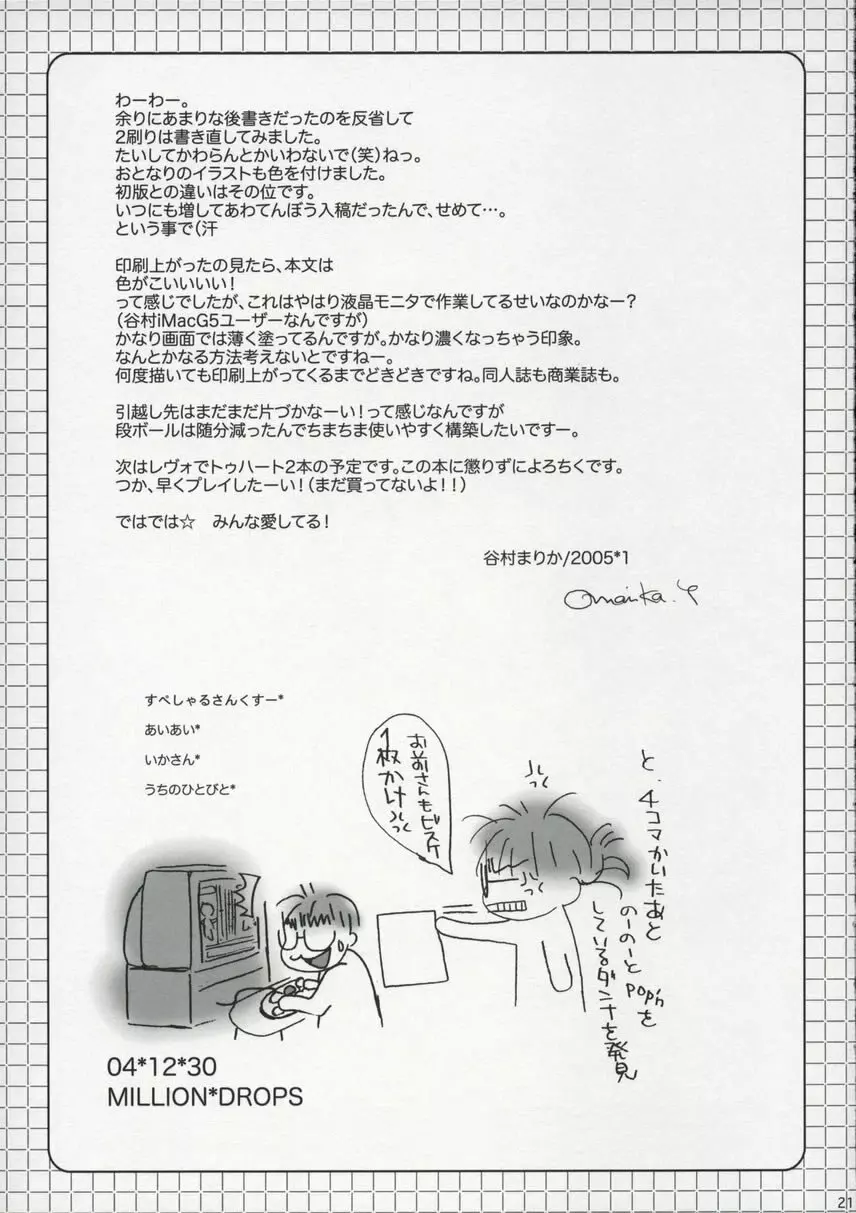 わーわー。
余りにあまりな後書きだったのを反省して
2刷りは書き直してみました。
たいしてかわらんとかいわないで（笑）ねっ。
おとなりのイラストも色を付けました。
初版との違いはその位です。
いつにも増してあわてんぼう入稿だったんで、せめて…。
という事で（汗
印刷上がったの見たら、本文は
色がこいいいい！
って感じでしたが、これはやはり液晶モニタで作業してるせいなのかなー？
（谷村iMacG5ユーザーなんですが）
かなり画面では薄く塗ってるんですが。かなり濃くなっちゃう印象。
なんとかなる方法考えないとですねー。
何度描いても印刷上がってくるまでどきどきですね。同人誌も商業誌も。
引越し先はまだまだ片づかなーい！って感じなんですが
段ボールは随分減ったんでちまちま使いやすく構築したいですー。
次はレヴォでトゥハート2本の予定です。この本に懲りずによろちくです。
つか、早くプレイしたーい！（まだ買ってないよ！！）
ではでは☆　みんな愛してる！
谷村まりか/2005*1
すぺしゃるさんくすー*
あいあい*
いかさん*
うちのひとびと*
と、4コマかいたあと
のーのーとpop'nを
しているダンナを発見
お前さんもビスケ
1枚かけ
04*12*30
MILLION*DROPS
21